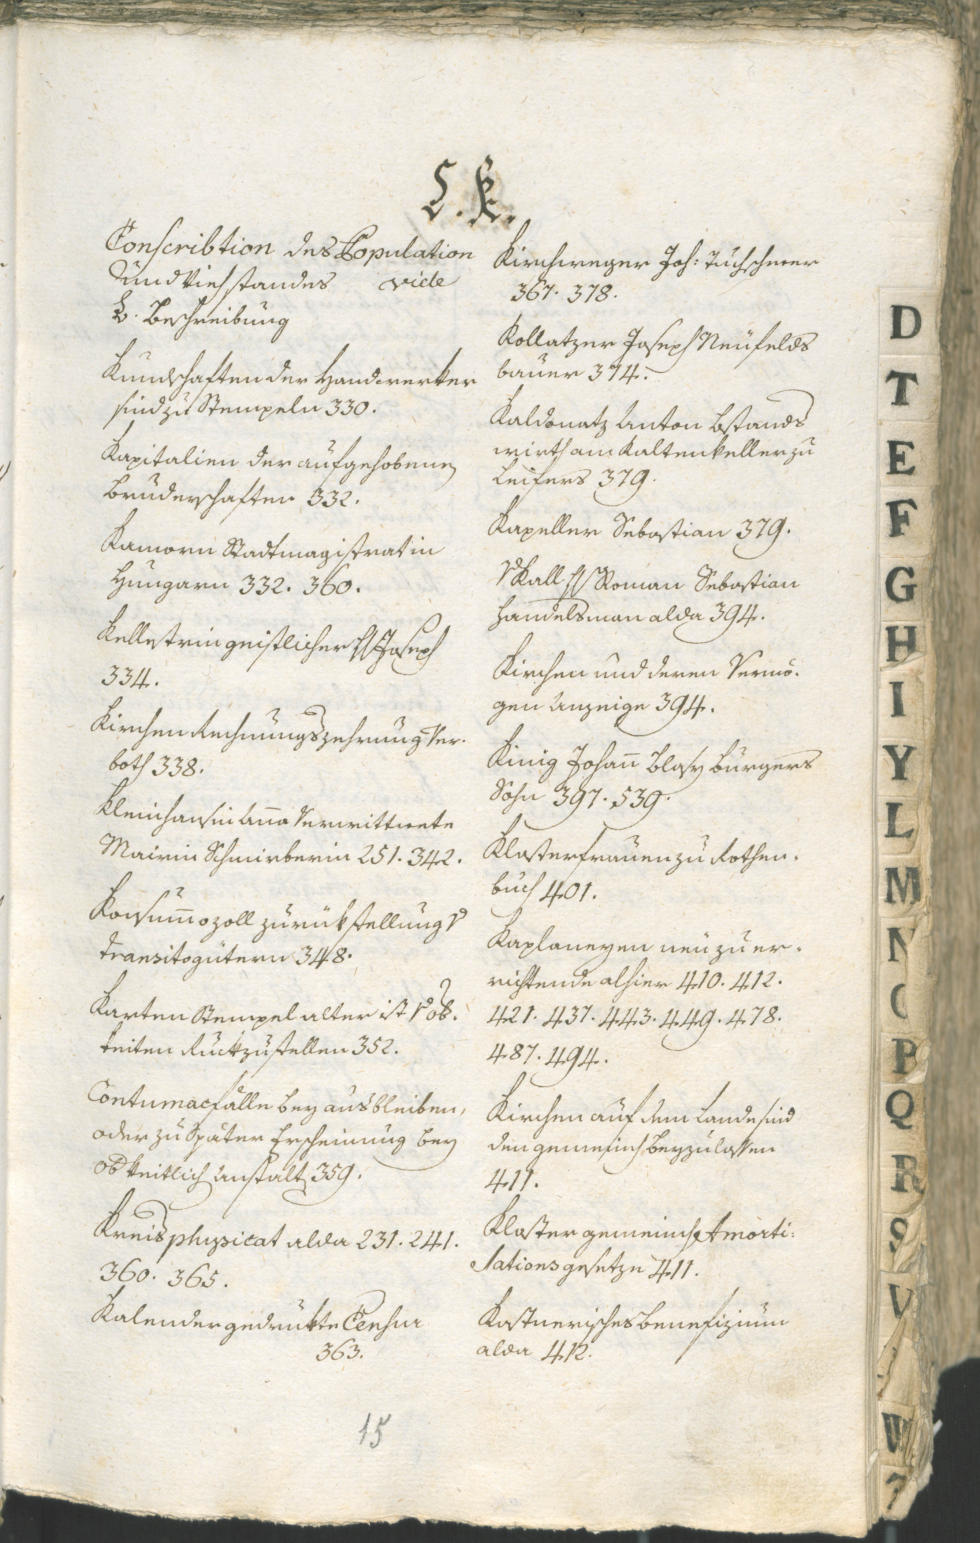 C. K.
Conscribtion des Population
und Viehstandes vide
B. Beschreibung
Kundschaften der Handwerker
sind zu Stempeln 330.
Kapitalien der aufgehobenen
Bruderschaften 332.
Kamorn Stadtmagistrat in
Hungarn 332. 360.
Kellestrin geistlicher H. Joseph
334.
Kirchen Rechnungszehrung Ver-
both 338.
Kleinhansin Anna Verwittwete
Mairin Schmirberin 251. 342.
Konsummozoll zurückstellung
Transitogütern 348.
Karten Stempel alter ist
keiten Rückzustellen 352.
Contumazfälle bey ausbleiben,
oder zu Später Erscheinung bey
Obkeitlich Anstalt 359.
Kreisphysicat alda 231. 241.
360. 365.
Kalender gedrukte Censur
363.
Kirchweger Joh: Tuchscherer
367. 378.
Kollatzer Joseph Neufelds
bauer 374.
Kaldonatz Anton Bstands
wirth am Kaltenkeller zu
Leifers 379.
Kapeller Sebastian 379.
Kall Roman Sebastian
Handelsman alda 394.
Kirchen und deren Vermö-
gen Anzeige 394.
Kinig Johann Blasy Bürgers
Sohn 397. 539.
Klosterfrauen zu Rothen-
buch 401.
Kaplaneyen neu zu er-
richtende alhier 410. 412.
421. 437. 443. 449. 478.
487. 494.
Kirchen auf dem Lande sind
den gemeinen beyzulassen
411.
Kloster gemeine Amorti-
sationsgesetze 411.
Kastnerisches Benefizium
alda 412.
15
D
T
E
F
G
H
I
Y
L
M
N
P
Q
R
S
V
W